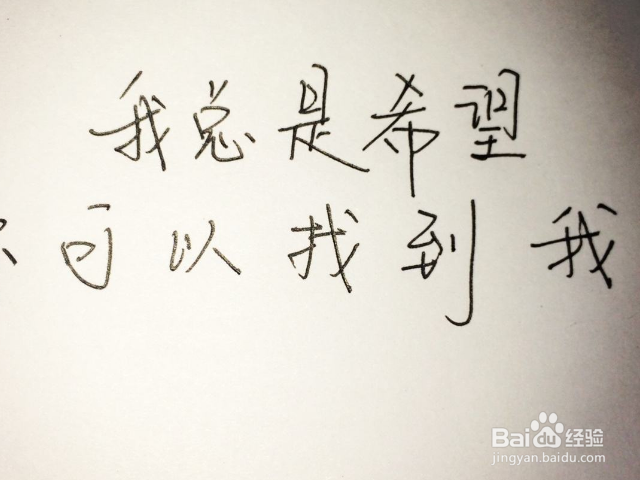 我总是希望
可以找到我
Bai du 经验
jingyan.baidu.com